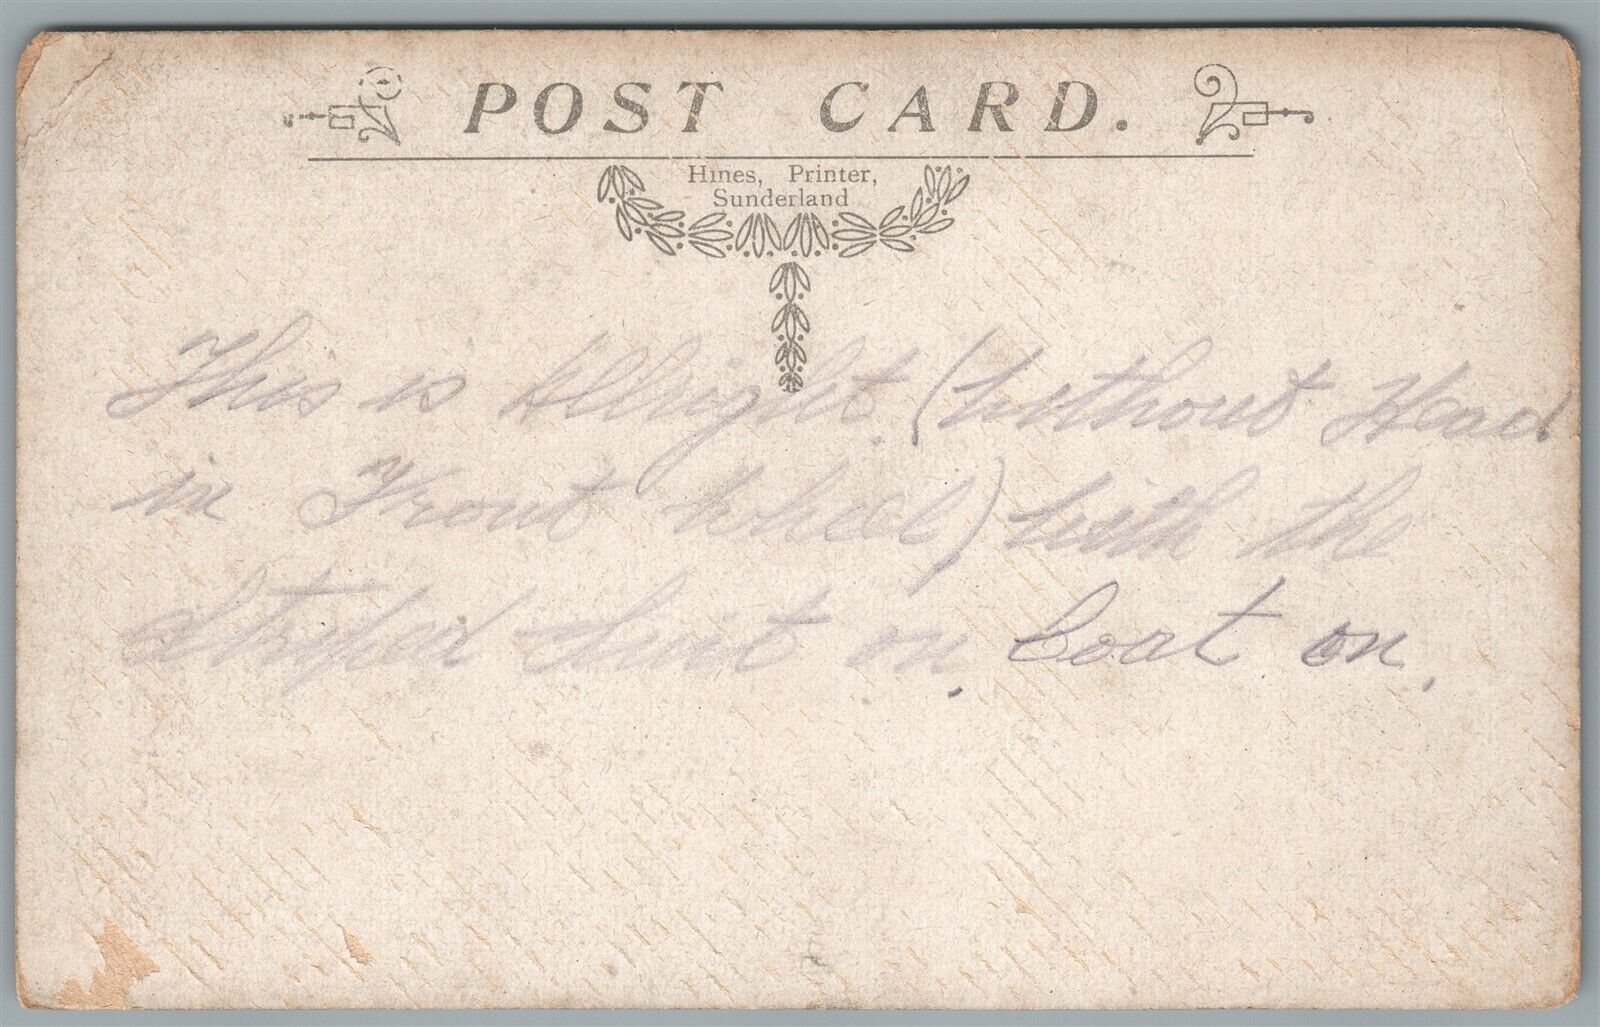 POST CARD.
Hines, Printer,
Sunderland
This is Allright. (Without Head
in Front Wheel) With the
Striped Suit on. Coat on.